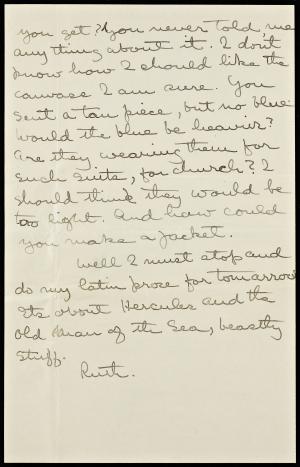 you get? You never told me
any thing about it. I don't
know how I should like the
canvass I am sure. You
sent a tan piece, but no blue.
Would the blue be heavier?
Are they wearing them for
such suits, for church? I
should think they would be
too light. And how could
you make a jacket.
Well I must stop and
do my latin prose for tomarrow
Its about Hercules and the
Old Man of the Sea, beastly
stuff.
Ruth.